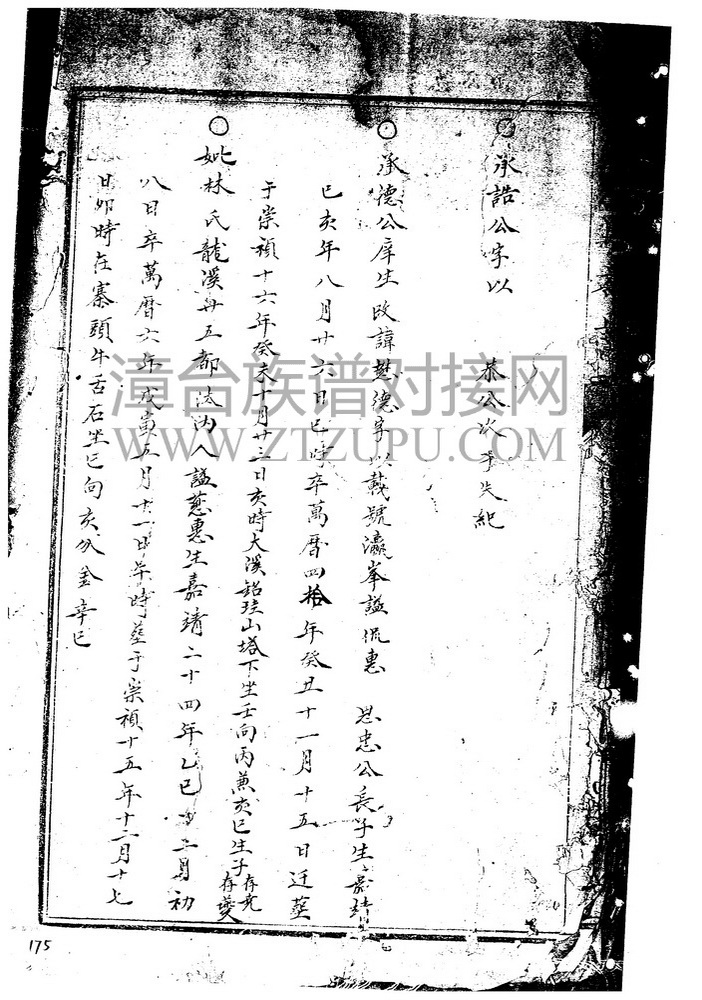 ○承誥公字以 恭公次子失紀
○承德公庠生改諱懋德字以載號瀛峯謚侃惠 思忠公長子生嘉靖
己亥年八月廿六日巳時卒萬曆四拾年癸丑十一月十五日迁葬
于崇禎十六年癸未十月廿三日亥時大溪銘珪山塔下坐壬向丙兼亥巳生子存堯存夔
○妣林氏龍溪廿五都 人謚慈惠生嘉靖二十四年乙巳 三月初
八日卒萬曆六年戊寅五月十一日午時葬于崇禎十五年十二月十七
日卯時在寨頭牛舌石坐巳向亥 金辛巳
漳台族谱对接网
WWW.ZTZUPU.COM
175